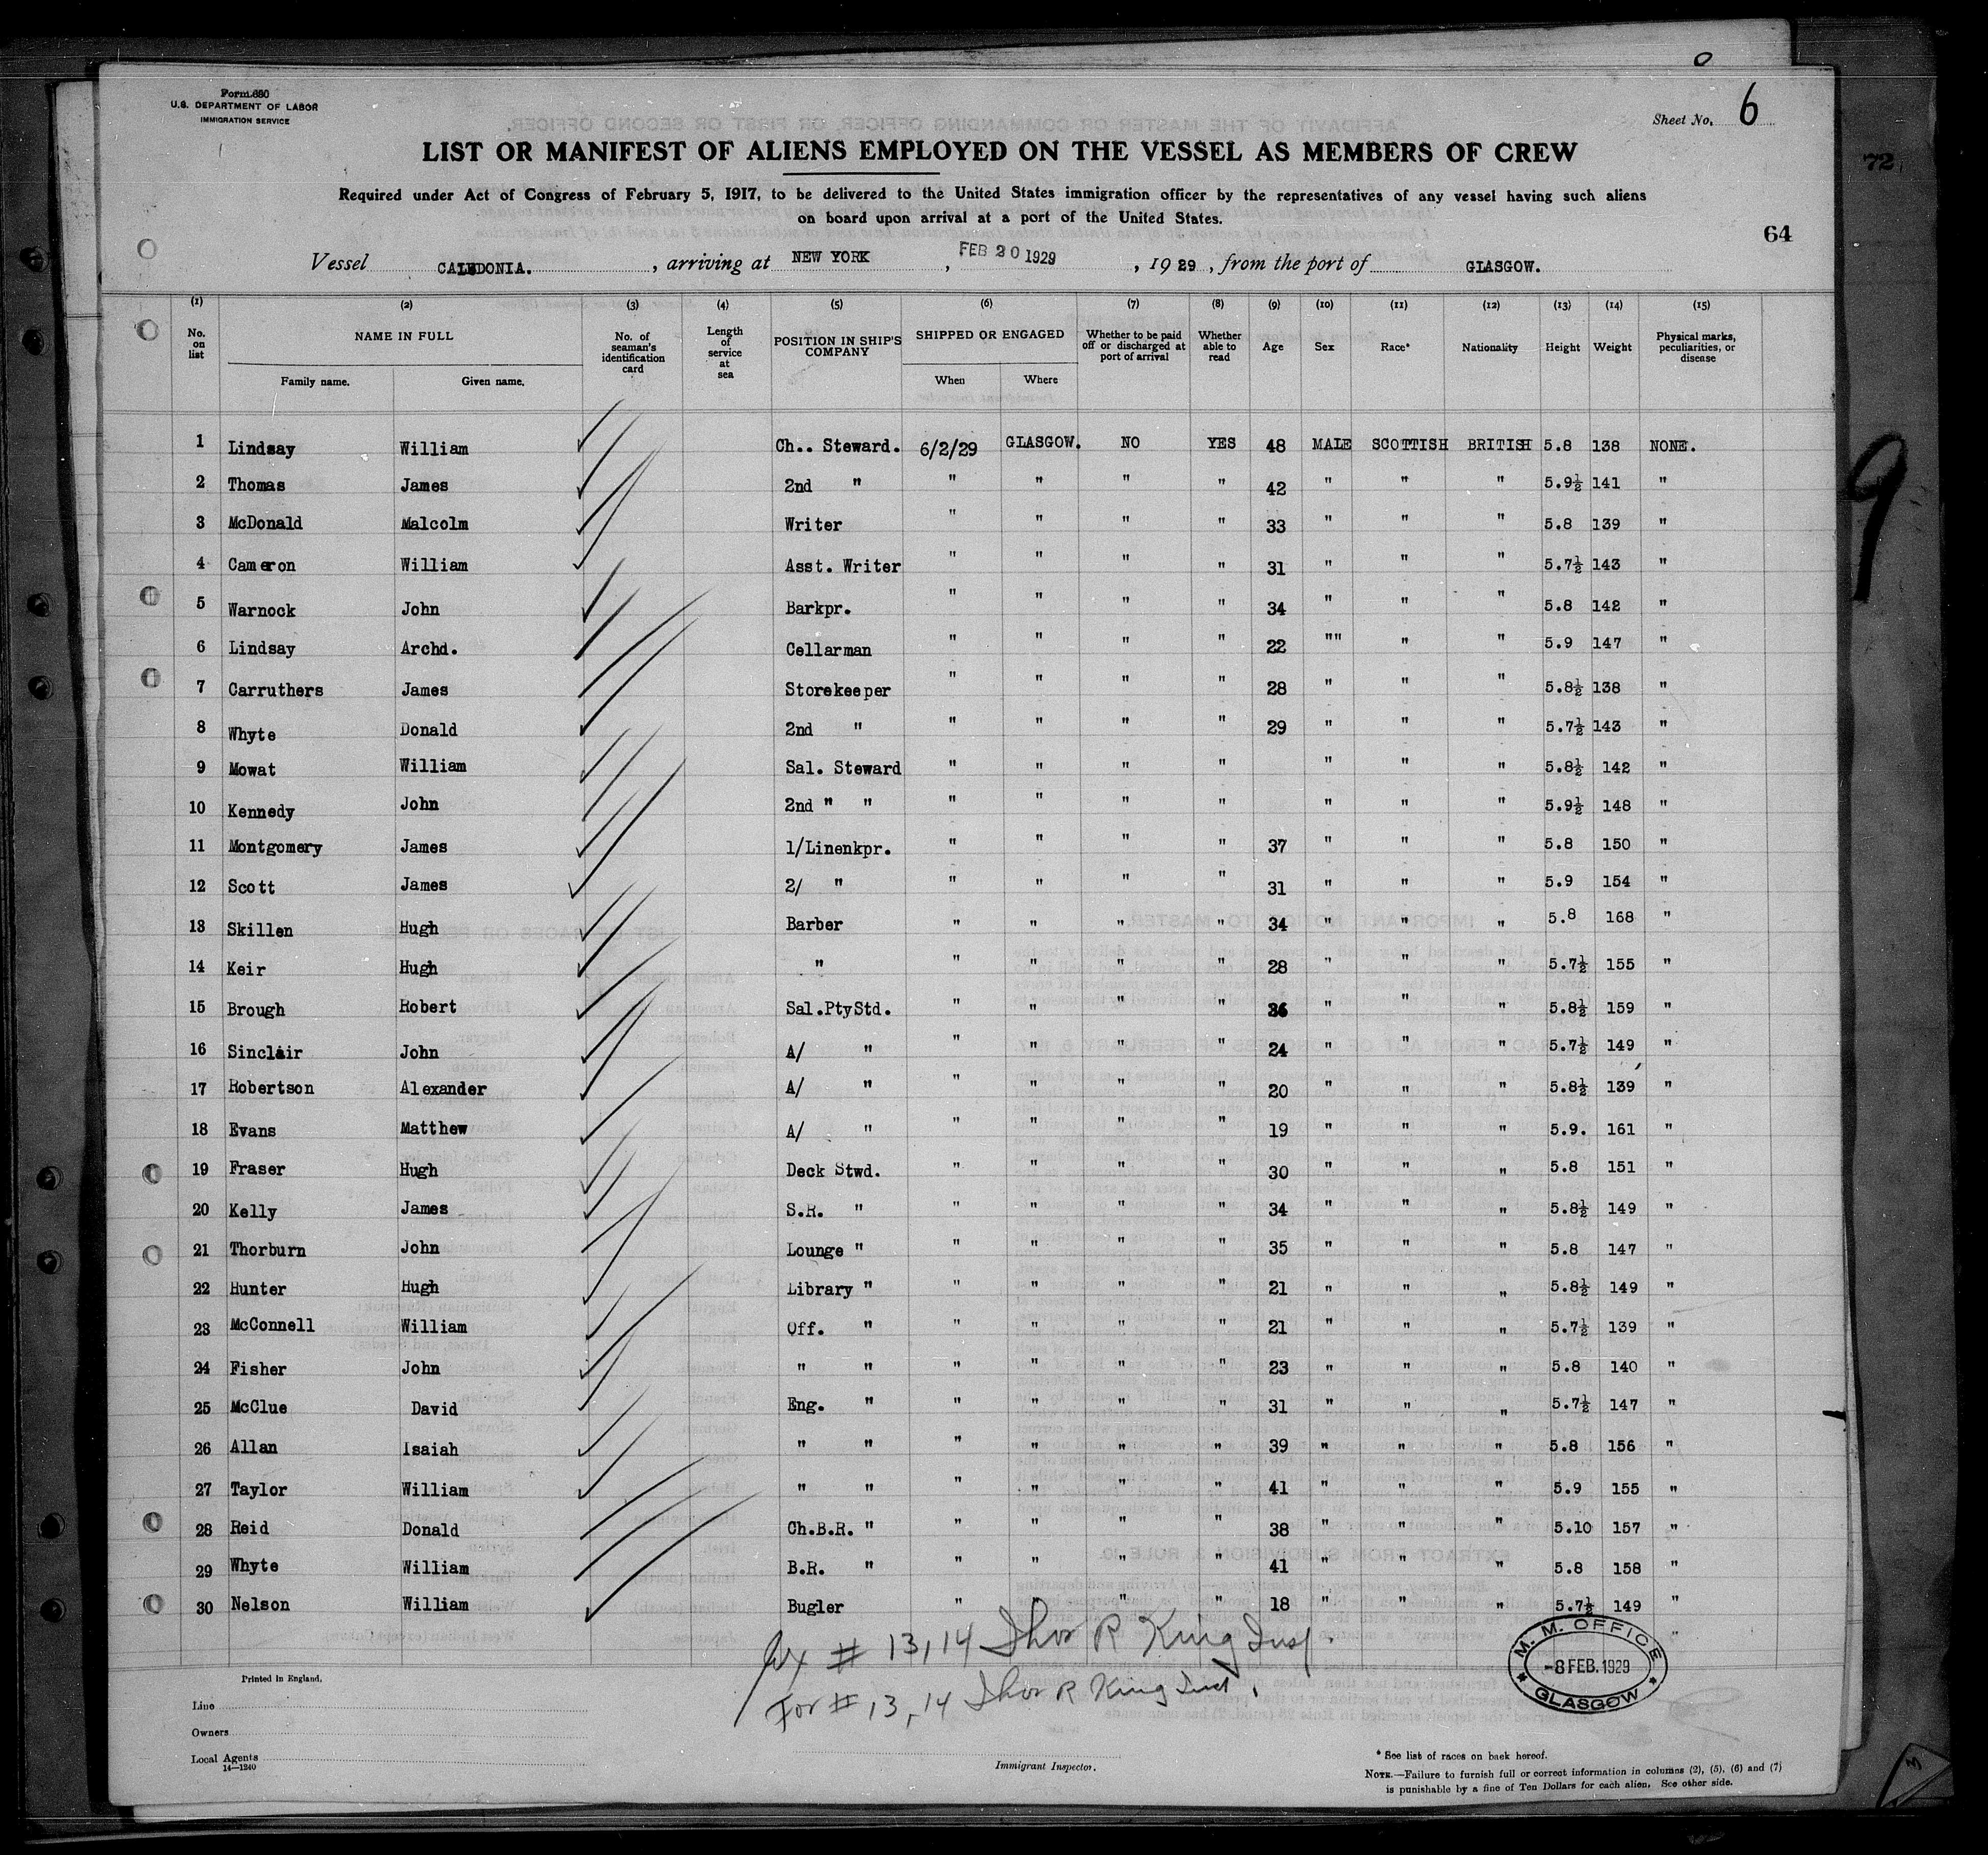 Form 680
U.S. DEPARTMENT OF LABOR
IMMIGRATION SERVICE
Sheet No. 6
LIST OR MANIFEST OF ALIENS EMPLOYED ON THE VESSEL AS MEMBERS OF CREW
72
Required under Act of Congress of February 5, 1917, to be delivered to the United States immigration officer by the representatives of any vessel having such aliens
on board upon arrival at a port of the United States.
64
Vessel CALEDONIA. , arriving at NEW YORK , FEB 20 1929 , 1929 , from the port of GLASGOW.
(1) (2) (3) (4) (5) (6) (7) (8) (9) (10) (11) (12) (13) (14) (15)
No. on list NAME IN FULL Family name. Given name. No. of seaman's identification card Length of service at sea POSITION IN SHIP'S COMPANY SHIPPED OR ENGAGED When Where Whether to be paid off or discharged at port of arrival Whether able to read Age Sex Race* Nationality Height Weight Physical marks, peculiarities, or disease
1 Lindsay William Ch.. Steward. 6/2/29 GLASGOW. NO YES 48 MALE SCOTTISH BRITISH 5.8 138 NONE.
2 Thomas James 2nd " " " " " 42 " " " 5.9½ 141 "
3 McDonald Malcolm Writer " " " " 33 " " " 5.8 139 "
4 Cameron William Asst. Writer " " " " 31 " " " 5.7½ 143 "
5 Warnock John Barkpr. " " " " 34 " " " 5.8 142 "
6 Lindsay Archd. Cellarman " " " " 22 "" " " 5.9 147 "
7 Carruthers James Storekeeper " " " " 28 " " " 5.8½ 138 "
8 Whyte Donald 2nd " " " " " 29 " " " 5.7½ 143 "
9 Mowat William Sal. Steward " " " " " " 5.8½ 142 "
10 Kennedy John 2nd " " " " " " " " 5.9½ 148 "
11 Montgomery James 1/Linenkpr. " " " " 37 " " " 5.8 150 "
12 Scott James 2/ " " " " " 31 " " " 5.9 154 "
13 Skillen Hugh Barber " " " " 34 " " " 5.8 168 "
14 Keir Hugh " " " " " 28 " " " 5.7½ 155 "
15 Brough Robert Sal.PtyStd. " " " " " " " 5.8½ 159 "
16 Sinclair John A/ " " " " " 24 " " " 5.7½ 149 "
17 Robertson Alexander A/ " " " " " 20 " " " 5.8½ 139 "
18 Evans Matthew A/ " " " " " 19 " " " 5.9. 161 "
19 Fraser Hugh Deck Stwd. " " " " 30 " " " 5.8 151 "
20 Kelly James S.R. " " " " " 34 " " " 5.8½ 149 "
21 Thorburn John Lounge " " " " " 35 " " " 5.8 147 "
22 Hunter Hugh Library " " " " " 21 " " " 5.8½ 149 "
23 McConnell William Off. " " " " " 21 " " " 5.7½ 139 "
24 Fisher John " " " " " " 23 " " " 5.8 140 "
25 McClue David Eng. " " " " " 31 " " " 5.7½ 147 "
26 Allan Isaiah " " " " " " 39 " " " 5.8 156 "
27 Taylor William " " " " " " 41 " " " 5.9 155 "
28 Reid Donald Ch.B.R. " " " " " 38 " " " 5.10 157 "
29 Whyte William B.R. " " " " " 41 " " " 5.8 158 "
30 Nelson William Bugler " " " " 18 " " " 5.7½ 149 "
# 13, 14 Thos R King Insp.
For # 13, 14 Thos R King Insp.
M. M. OFFICE
-8 FEB. 1929
GLASGOW
Printed in England.
Line
Owners
Local Agents
14—1240
Immigrant Inspector.
* See list of races on back hereof.
NOTE.—Failure to furnish full or correct information in columns (2), (5), (6) and (7)
is punishable by a fine of Ten Dollars for each alien. See other side.
9